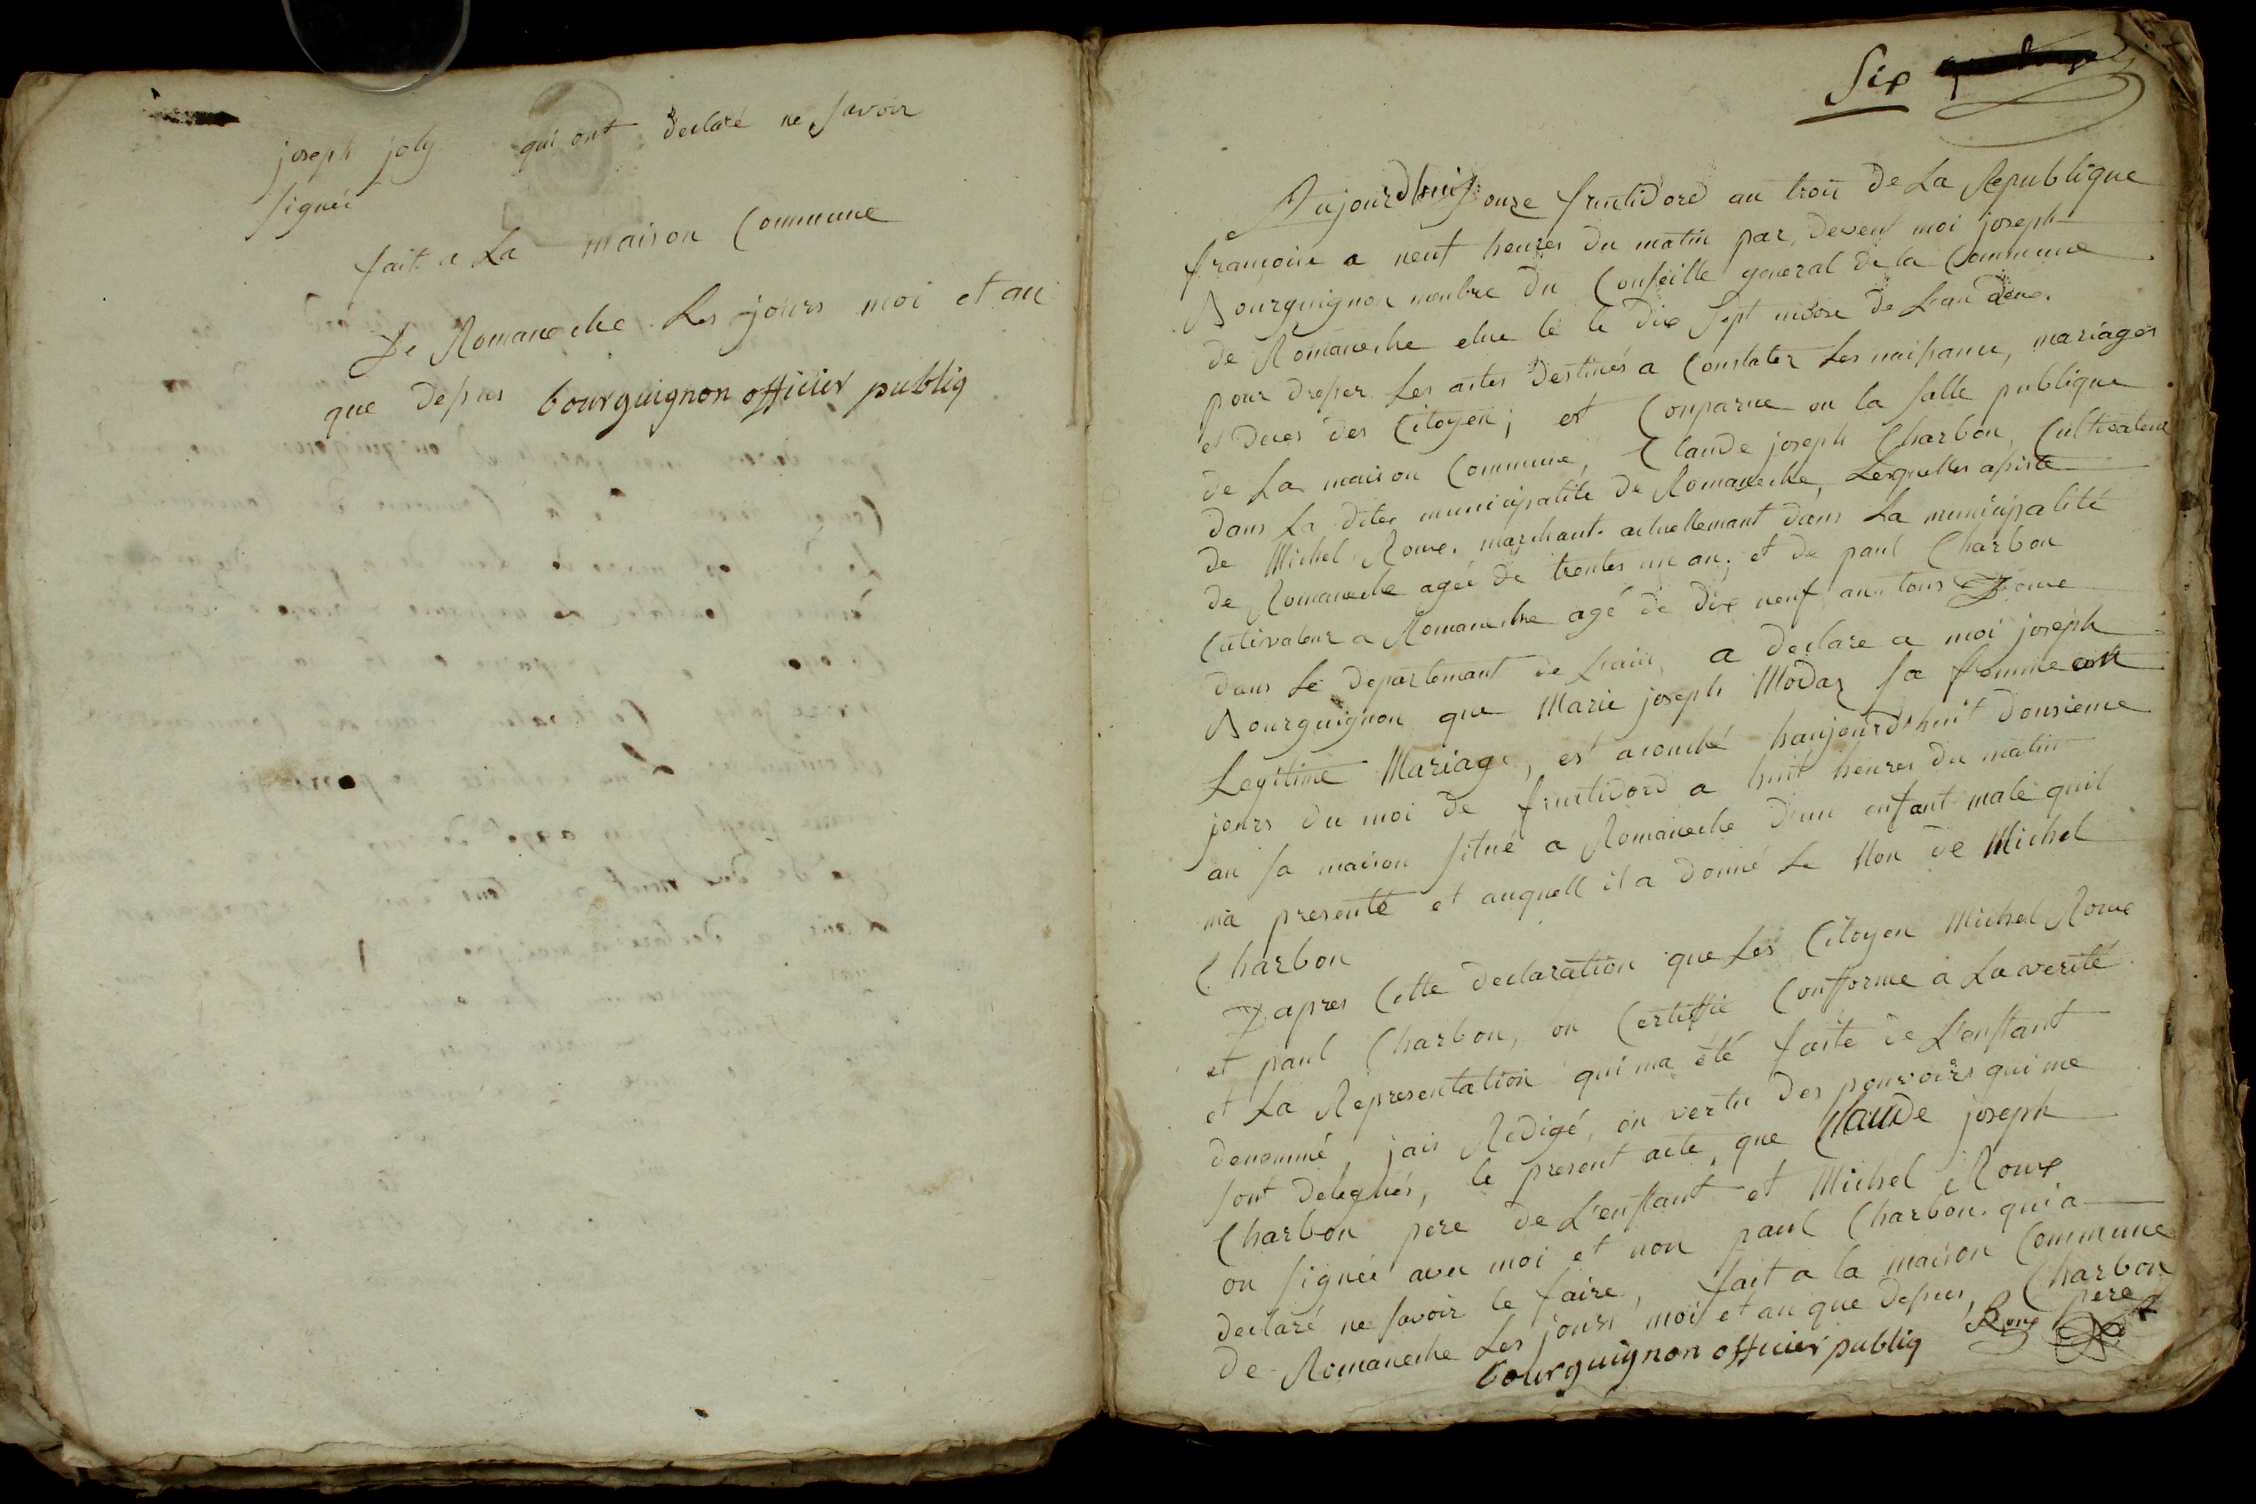 joseph joly qui ont declaré ne savoir
signeé
fait a La maison Commune
De Romaneche Les jours moi et an
que depus bourguignon officier publiq
Six
Aujourdhuit onze fructidord an troii de La Republique
françoise a neuf heures du matin par devent moi joseph
Bourguignon menbre du Conseille general de la Commune
de Romaneche elue le le dix sept nivose de L'an deux
pour dresser Les actes destinés a Constater Les naissance, mariages
et deces des Citoyen; est Conparue en la salle publique
de La maison Commune, Claude joseph Charbon, Cultivateur
dans La dites municipalité de Romaneche, Lesquelles assiste
de Michel Roux. marchant actuellemant dans La municipalité
de Romaneche ageé de trentes un an, et de paul Charbon
Cutivateur a Romaneche agé de dix neuf an tous
dans Le departemant de Lain, a declare a moi joseph
Bourguignon que Marie joseph Modaz sa femme en
Legitime Mariage, est acouché haujourd'huit dousieme
jours du moi de fructidord a huit heures du matin
an sa maison situé a Romaneche d'un enfant male quil
ma presenté et auquell il a donné Le Non de Michel
Charbon
Dapres Cette declaration que Les Citoyen Michel Roux
et paul Charbon, on Certiffié Confforme à La verité
et La Representation qui ma été faite de L'enffant
denommé jais Redigé, en vertu des pouvoirs qui me
sont delegués, le present acte, que Claude joseph
Charbon pere de L'enffant et Michel Roux
on signéé avec moi et non paul Charbon. qui a
declaré ne savoir le faire, fait a la maison Commune
de Romaneche Les jours moi et an que depus, Charbon
pere
bourguignon officier publiq Roux